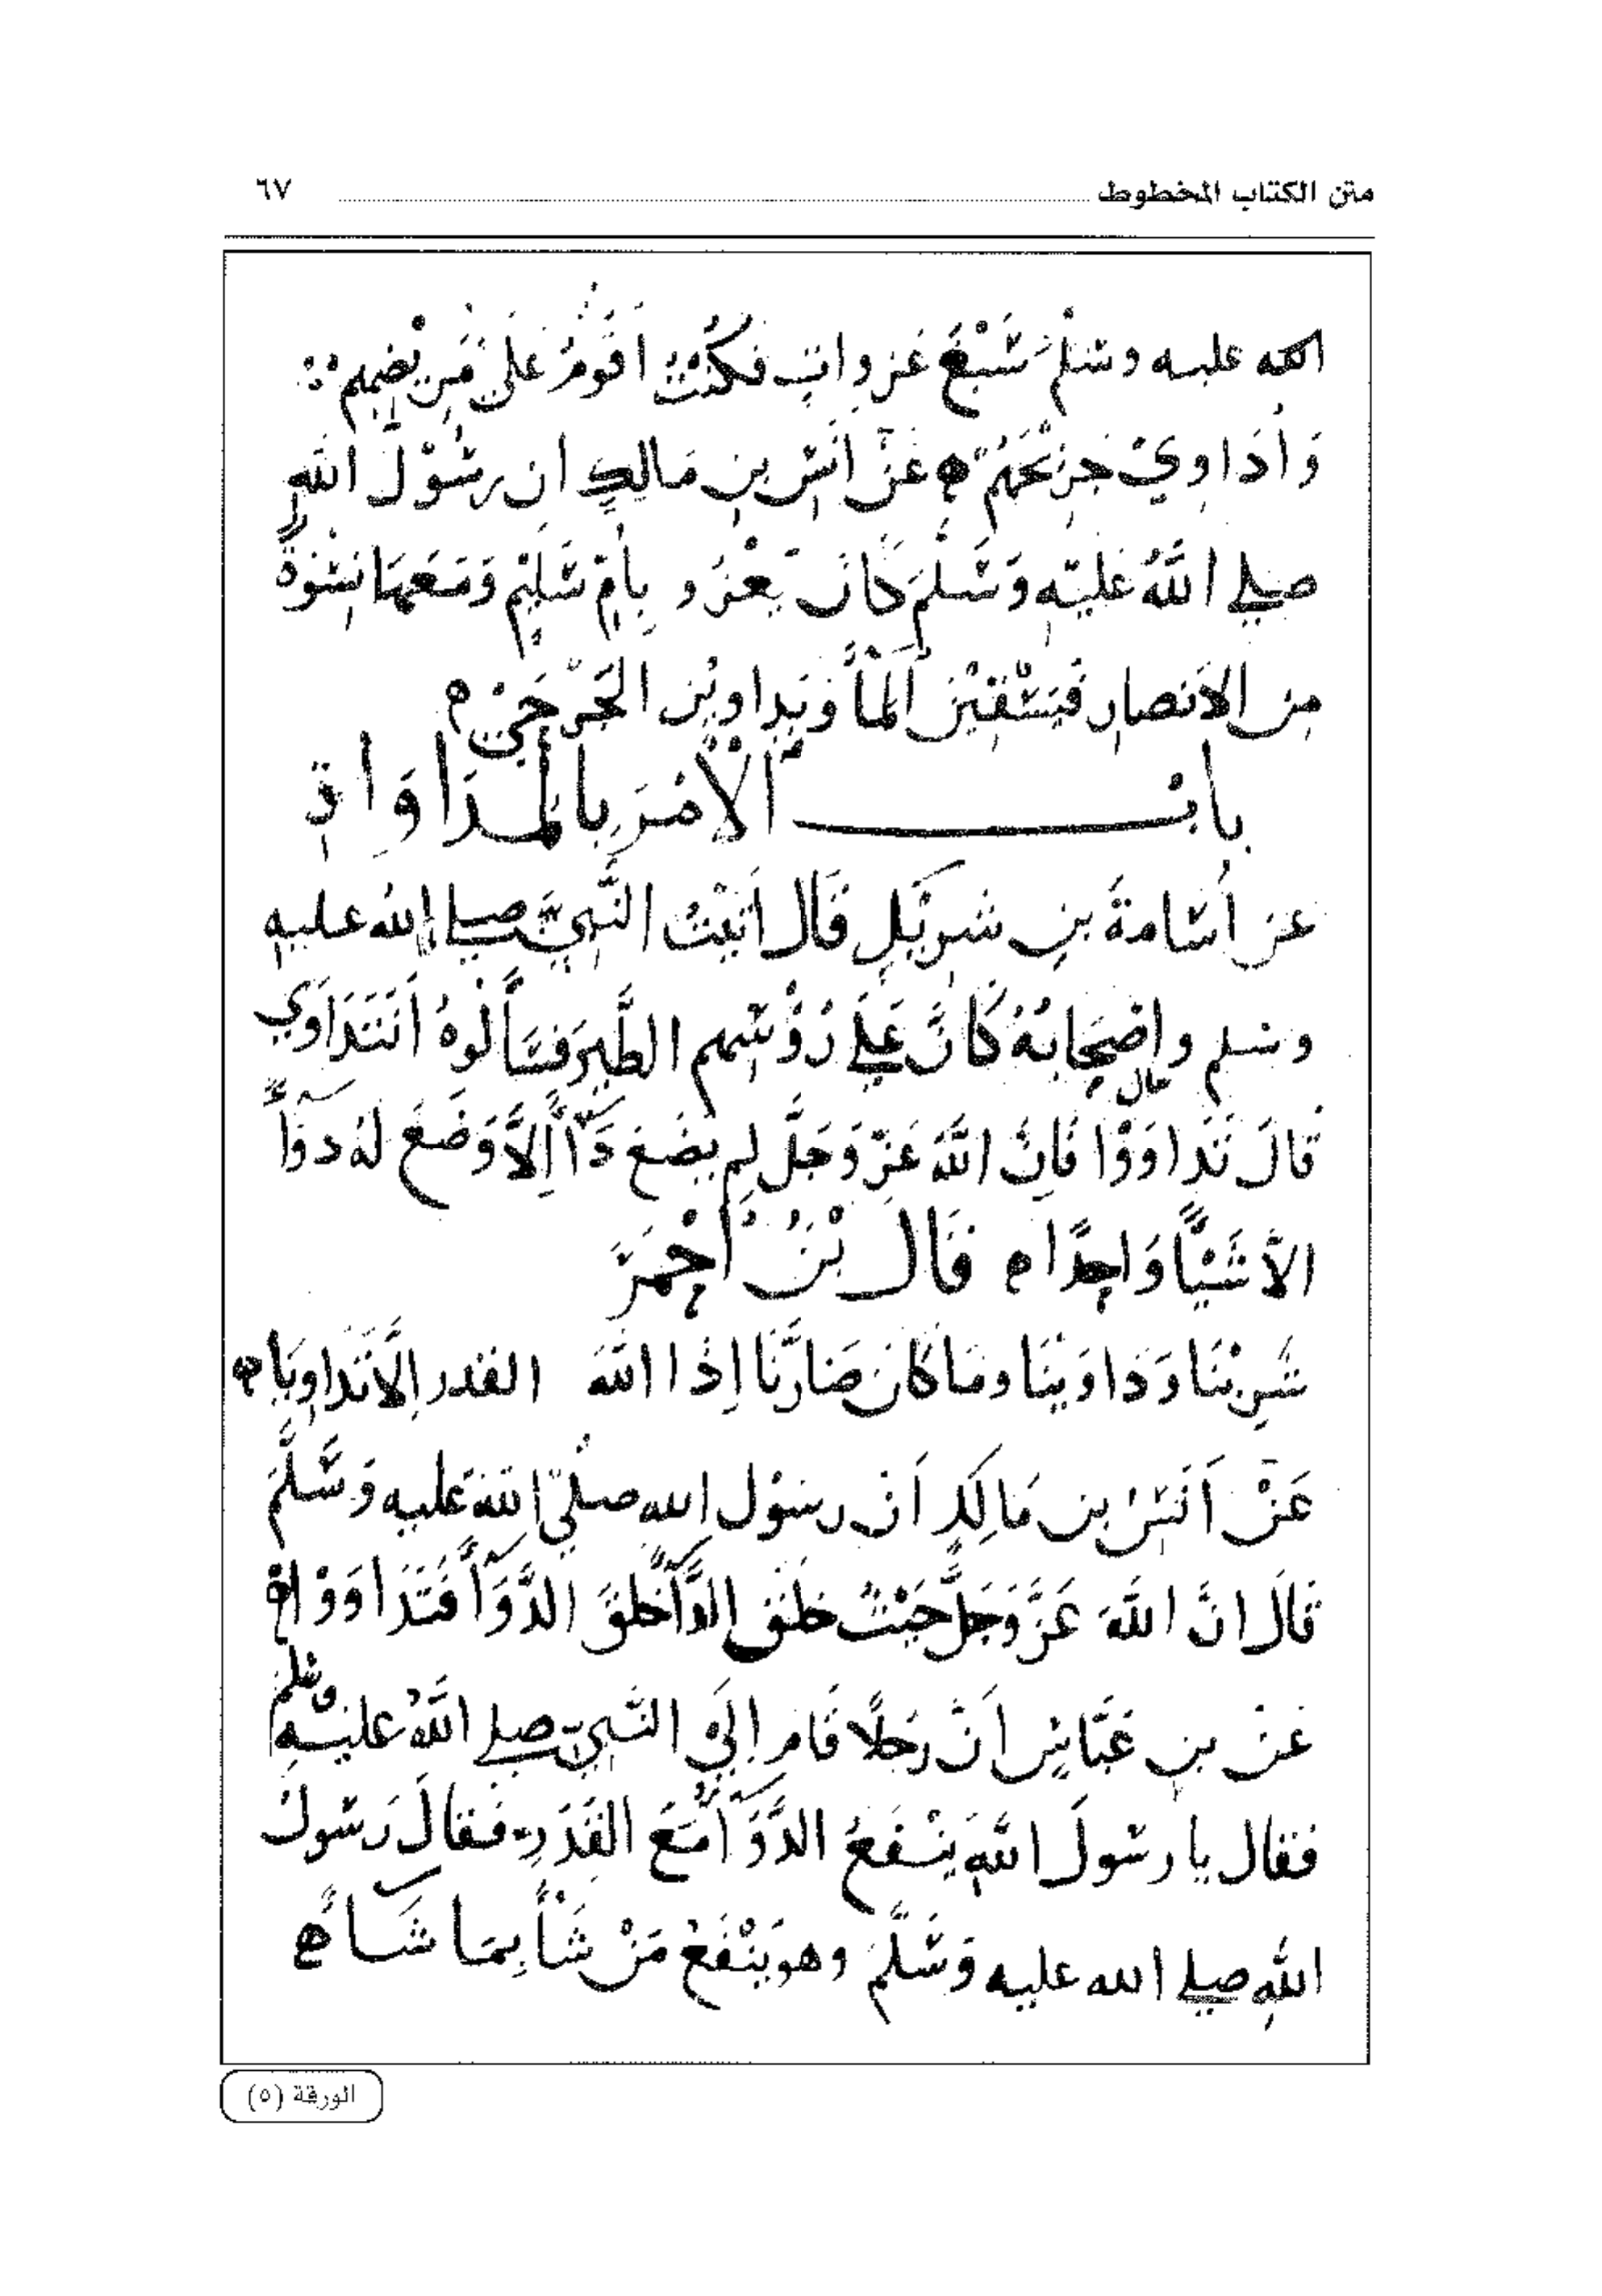 متن الكتاب المخطوط ٦٧
الله عليه وسلم سَبْعَ غزواتٍ فكُنْتُ اَقُومُ عَلىَ مَرِيْضِهِم
وَاُدَاوِيْ جَرِيْحَهُمْ عَنْ اَنَسِ بنِ مَالِكٍ ان رسُوْلَ اللهِ
صلى اللهُ عَليْهِ وَسَلَمَ كانَ يَغْزُو بِاُمِّ سُلَيْمٍ وَمَعَهَا نِسْوَةٌ
مِنَ الاَنصارِ فَيَسْقِيْنَ اَلمآَ وَيُداوِيْنَ الجَرْحَىْ
بابُ الاَمْرِ بِالمدَاوَاةِ
عن اُسَامةَ بنِ شريْكٍ قَالَ اَتَيْتُ النَّبيَّ صلى الله عليه
وسلم واصْحَابُهُ كَاَنَّ عَلى رُؤُسِهِم الطَّيرَ فسَألُوهُ اَنَتَدَاوَي
قالَ تَدَاوَوْا فَاِنَّ اللهَ عَزَّ وَجَلَّ لم يضَعْ دَآءً اِلَّا وَضَعَ لَهُ دَوآءً
الاَّ شَيْئًا وَاحِدًا قَالَ بْنُ اَحْمَرَ
شَرِبْنَا وَدَاوَيْنَا ومَا كانَ ضَارَّنَا اِذَا اللهُ القدر اِلَّا نَتَداوِيَا
عَنْ اَنَسِ بن مَالِكٍ اَنَّ رسُوْل اللهِ صلَّى اللهَ عَليه وَسَلَّمَ
قالَ اِنَّ اللهَ عَزَّ وَجَلَّ حَيْثُ خلَقَ الدَّآءَ خَلَقَ الدَّوَآءَ فَتَدَاوَوْا
عَنْ بنِ عَبَّاسٍ اَنَّ رَجُلًا قَامَ اِلىَ النَّبيِّ صلى اللهُ عليْهِ وسلم
فقال يا رسُولَ اللهِ يَنْفَعُ الدَّوَآءُ مَعَ القَدَرِ فَقالَ رَسُولُ
اللهِ صلى الله عليه وَسَلَّمَ وهو يَنْفَعُ مَنْ شَآءَ بِمَا شَآءَ
الورقة (٥)